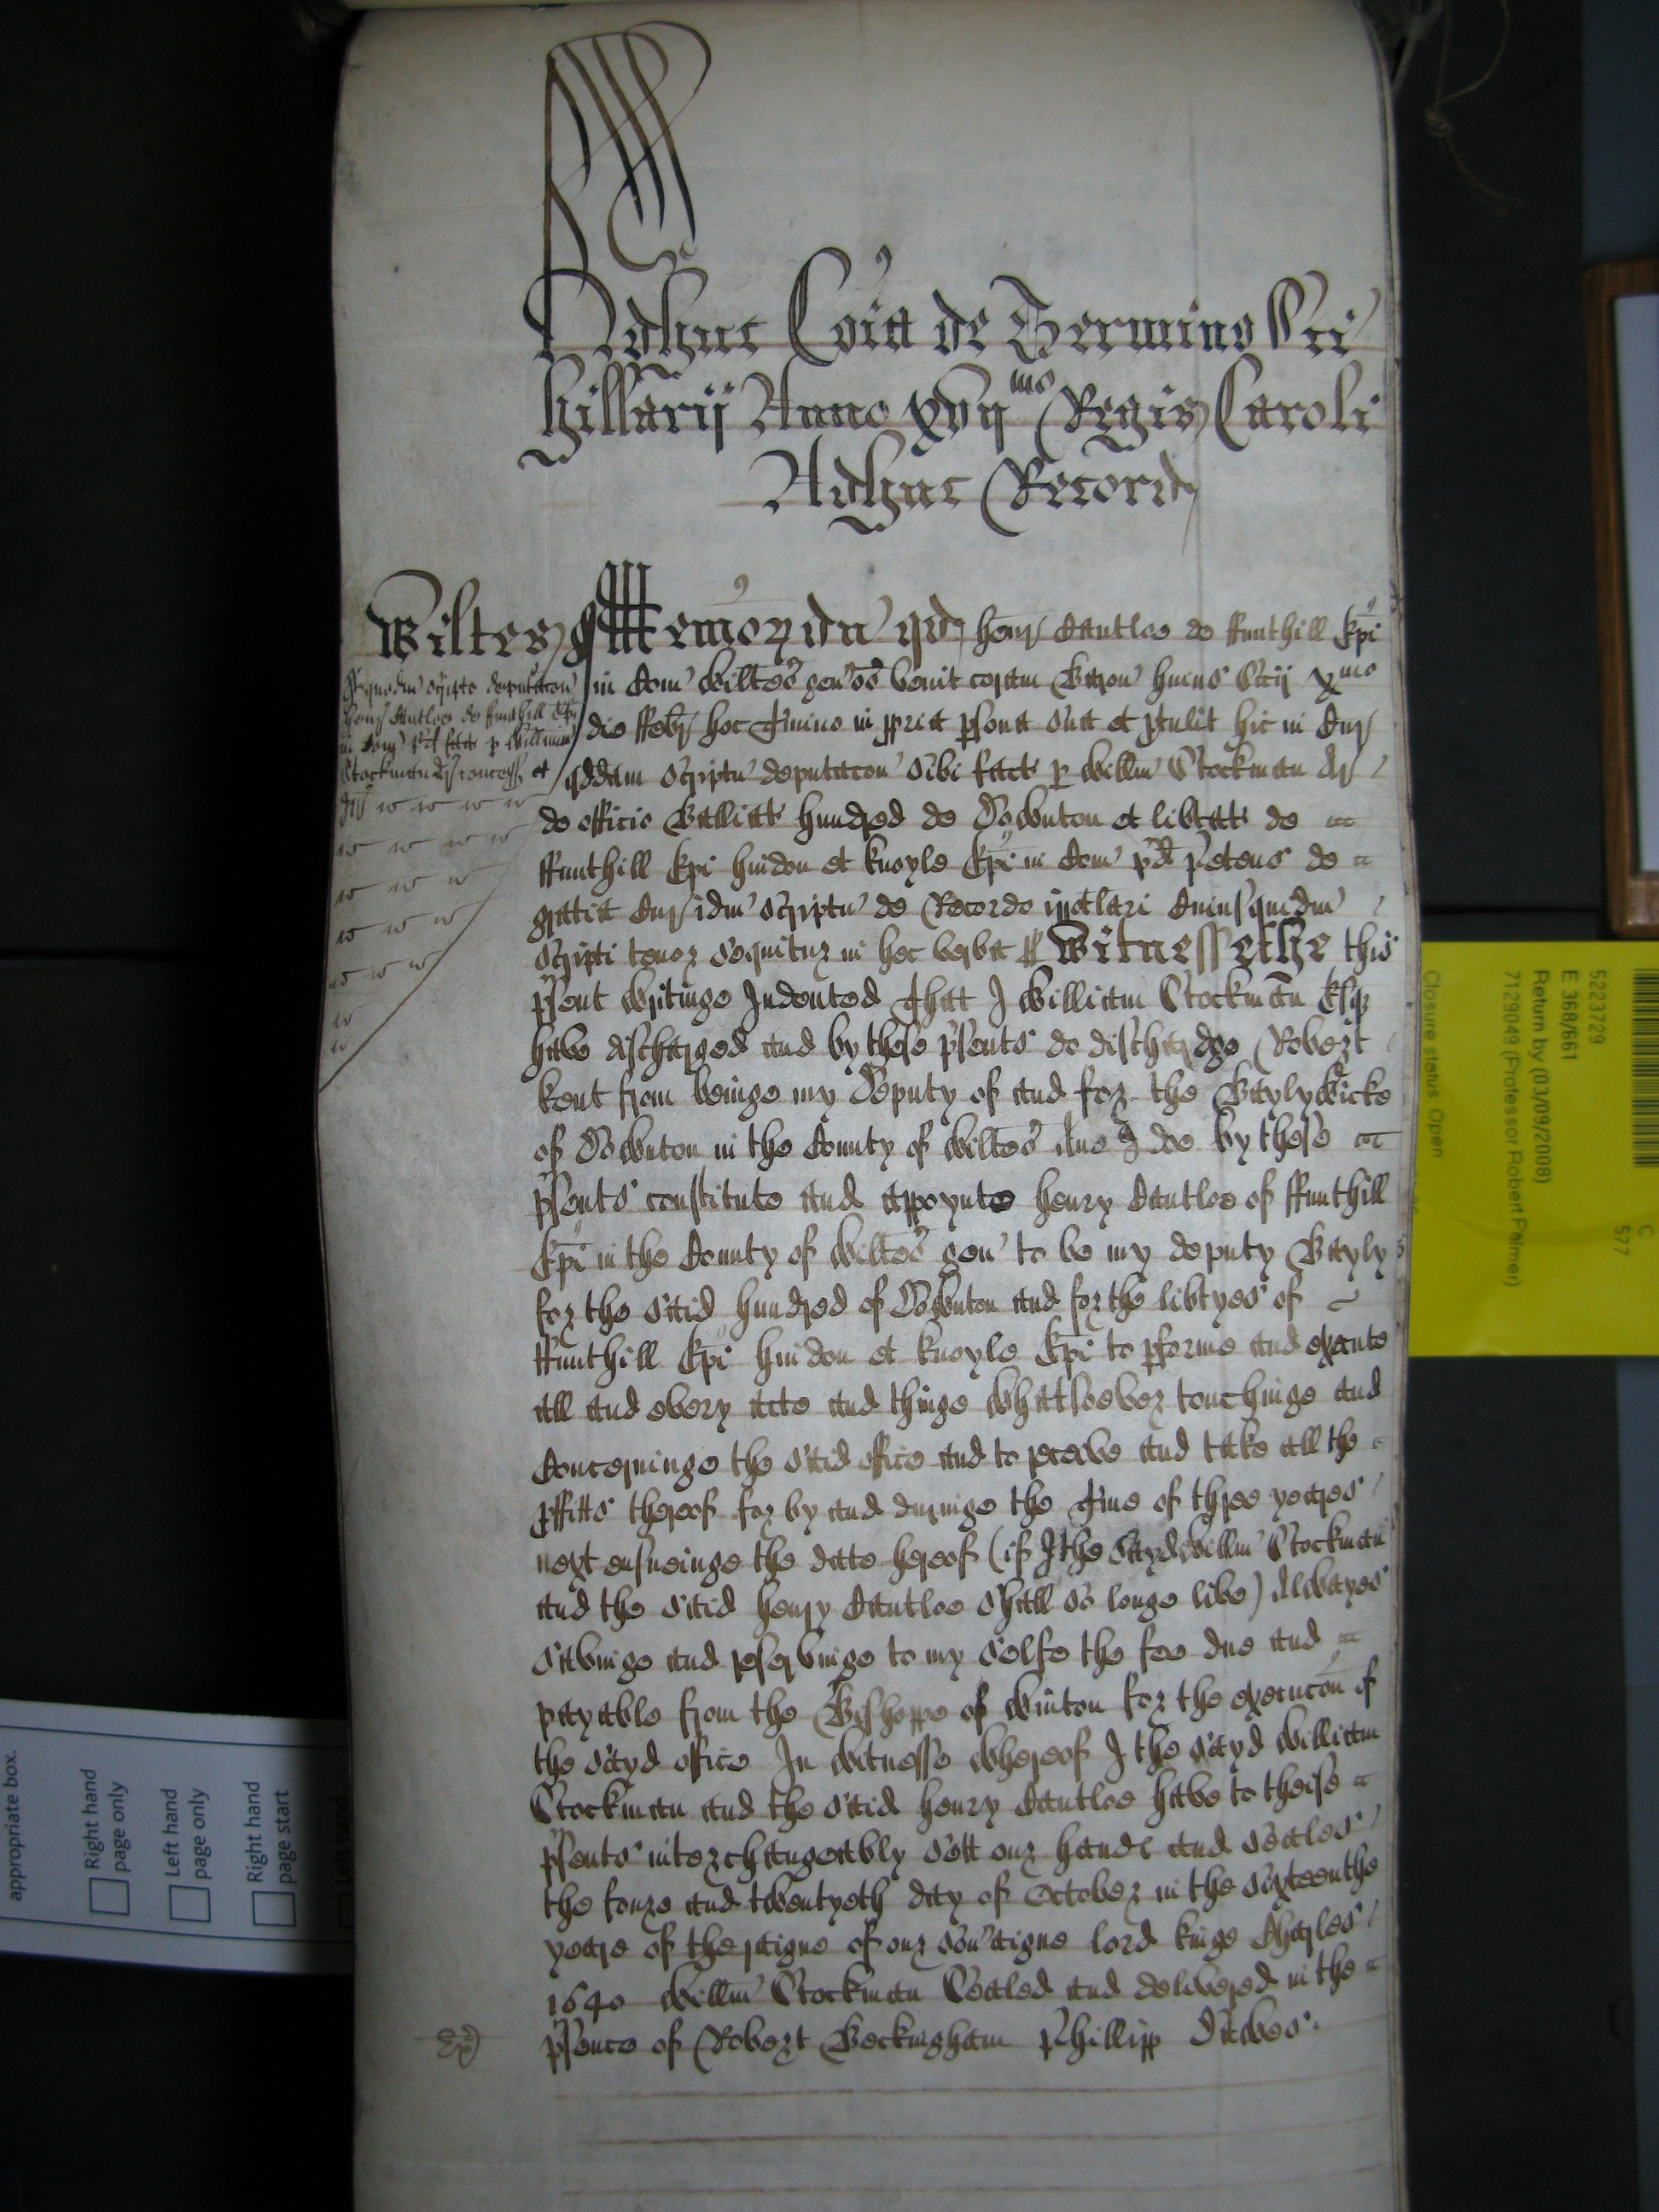 Adhuc Coia de Termino Sci
Hillarij Anno xvij mo Regis Caroli
Adhuc Record
Wiltes Memorandu qd henr Cantloe de ffunthill Epi
in Com Wiltes gen os venit coram Baron huius Sccij xmo
die ffebr hoc Tmino in ppria psona sua et ptulit hic in Cur
qddam scriptu deputacon sibi fact p Willm Stockman Ar
de officio Balliat hundred de Downton et libtat de
ffunthill Epi hindon et knoyle Epi in Com pd petens de
gratia Cur idm scriptu de Recordo irrotlari Cuius quidm
scripti tenor sequitur in hec verba Witnessethe this
psent writinge Indented That I William Stockman Esqr
have discharged and by these psents do dischardge Robert
kent from beinge my Deputy of and for the Baylywicke
of Downton in the County of Wiltes And I doe by these
psents constitute and appoynte henry Cantloe of ffunthill
Epi in the County of Wiltes gen to be my deputy Bayly
for the said hundred of Downton and for the libtyes of
ffunthill Epi hindon et knoyle Epi to pforme and execute
all and every acte and thinge whattsoever touchinge and
Concerninge the said office and to receave and take all the
pffitts thereof for by and duringe the Tme of three yeares
next ensueinge the date hereof (if I the sayd Willm Stockman
and the said henry Cantloe shall so longe live) Alwayes
savinge and reservinge to my selfe the fee due and
payable from the Bishoppe of Winton for the execucon of
the sayd office In witnesse whereof I the sayd William
Stockman and the said henry Cantloe have to theise
psents interchangeably sett our hands and seales
the foure and twentyeth day of October in the sixteenthe
yeare of the raigne of our sovaigne lord kinge Charles
1640 Willm Stockman Sealed and delivered in the
psence of Robert Beckingham Phillipp Dawes
quodm scripto deputacon
henr Cantloe de ffunthill Epi
in Com pd fact p Willmm
Stockman Ar concess et
5223729
E 368/661
Return by (03/09/2008)
7129049 (Professor Robert Palmer)
Closure status: Open
C
577
appropriate box.
Right hand
page only
Left hand
page only
Right hand
page start
Left hand